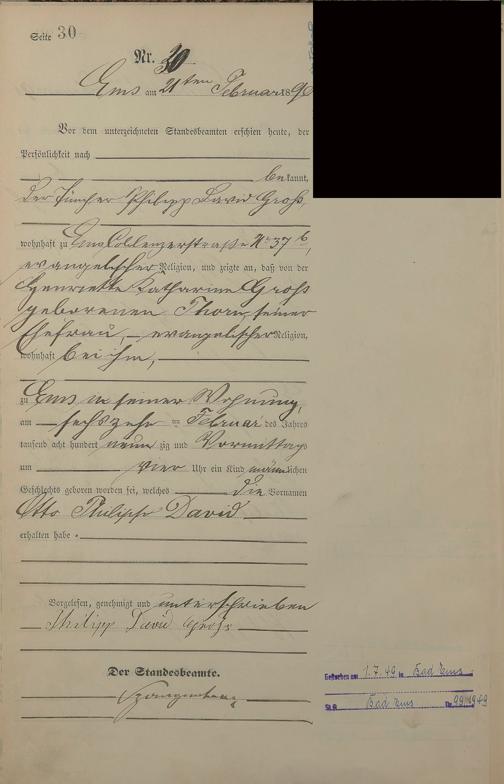 Seite 30
Nr. 30
Ems am 21ten Februar 1890
Vor dem unterzeichneten Standesbeamten erschien heute, der
Persönlichkeit nach
bekannt,
der Tüncher Philipp David Groß,
wohnhaft zu Ems Coblenzerstraße No 37 b,
evangelischer Religion, und zeigte an, daß von der
Henriette Katharine Groß
geborenen Thorn, seiner
Ehefrau, evangelischer Religion,
wohnhaft bei ihm,
zu Ems in seiner Wohnung,
am sechszehn = Februar des Jahres
tausend acht hundert neunzig und Vormittags
um vier Uhr ein Kind männlichen
Geschlechts geboren worden sei, welches die Vornamen
Otto Philipp David
erhalten habe.
Vorgelesen, genehmigt und unterschrieben
Philipp David Groß
Der Standesbeamte.
Gestorben am 1.7.49 in Bad Ems
St.A. Bad Ems Nr. 99/1949